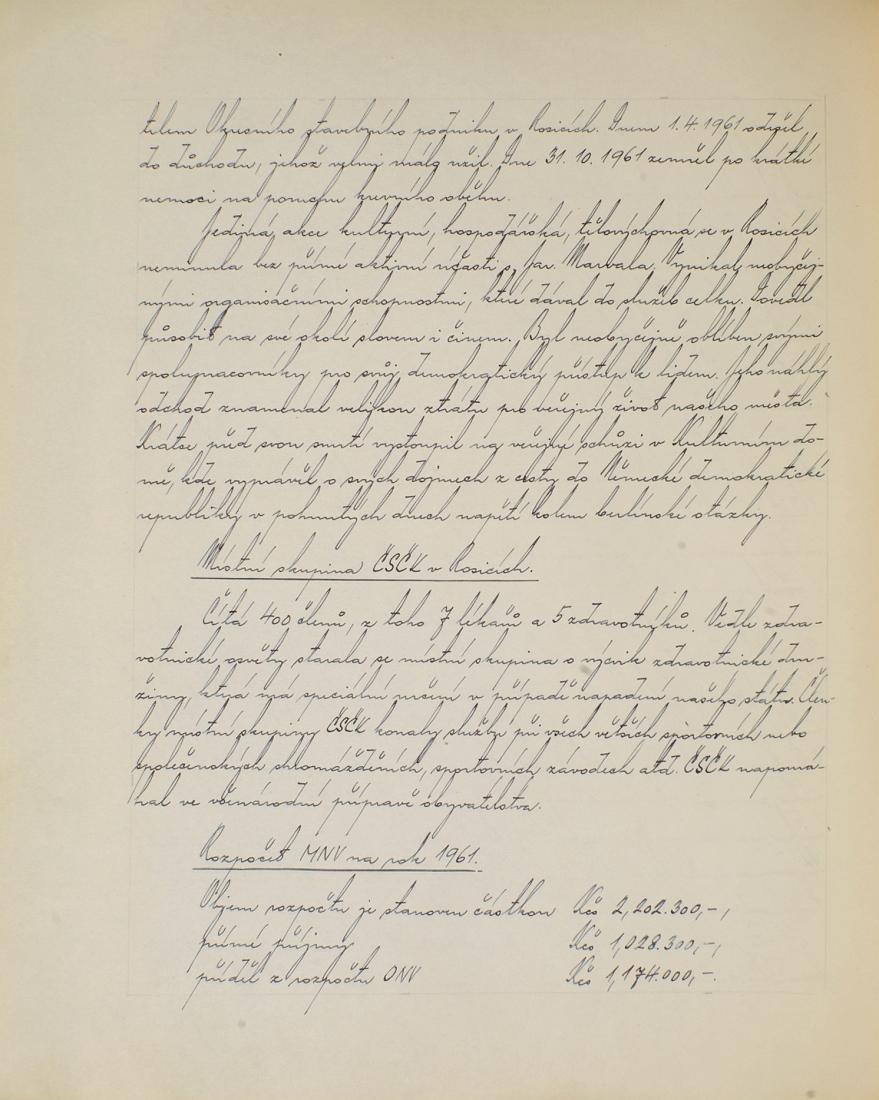 telem Okresního stavebního podniku v Rosicích. Dnem 1.4.1961 odešel
do důchodu, jehož velmi málo užil. Dne 31. 10. 1961 zemřel po krátké
nemoci na poruchu krevního oběhu.
Jediná akce kulturní, hospodářská, tělovýchovná se v Rosicích
neminula bez přímé aktivní účasti s. Jar. Marvala. Vynikal neobyčej-
nými organisačními schopnostmi, které dával do služeb celku. Dovedl
působit na své okolí slovem i činem. Byl neobyčejně oblíben svými
spolupracovníky pro svůj demokratický přístup k lidem. Jeho náhlý
odchod znamenal velikou ztrátu pro veřejný život našeho města.
Krátce před svou smrtí vystoupil na veřejné schůzi v Kulturním do-
mě, kde vyprávěl o svých dojmech z cesty do Německé demokratické
republiky v pohnutých dnech napětí kolem berlínské otázky.
Místní skupina ČSČK v Rosicích.
Čítá 400 členů, z toho 7 lékařů a 5 zdravotníků. Vedle zdra-
votnické osvěty starala se místní skupina o výcvik zdravotnické dru-
žiny, která má speciální určení v případě napadení našeho státu. Člen-
ky místní skupiny ČSČK konaly služby při všech větších sportovních nebo
společenských shromážděních, sportovních závodech atd. ČSČK napomá-
hal ve všenárodní přípravě obyvatelstva.
Rozpočet MNV na rok 1961.
Objem rozpočtu je stanoven částkou Kčs 2,202.300,-,
přímé příjmy Kčs 1,028.300,-,
příděl z rozpočtu ONV Kčs 1,174.000,-.